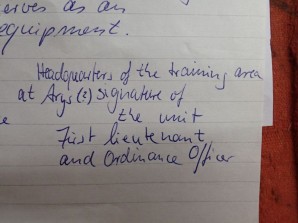 erves as an
equipment.
Headquarters of the training area
at Arys (?) Signature of
e the unit
First lieutenant
and Ordinance Officer